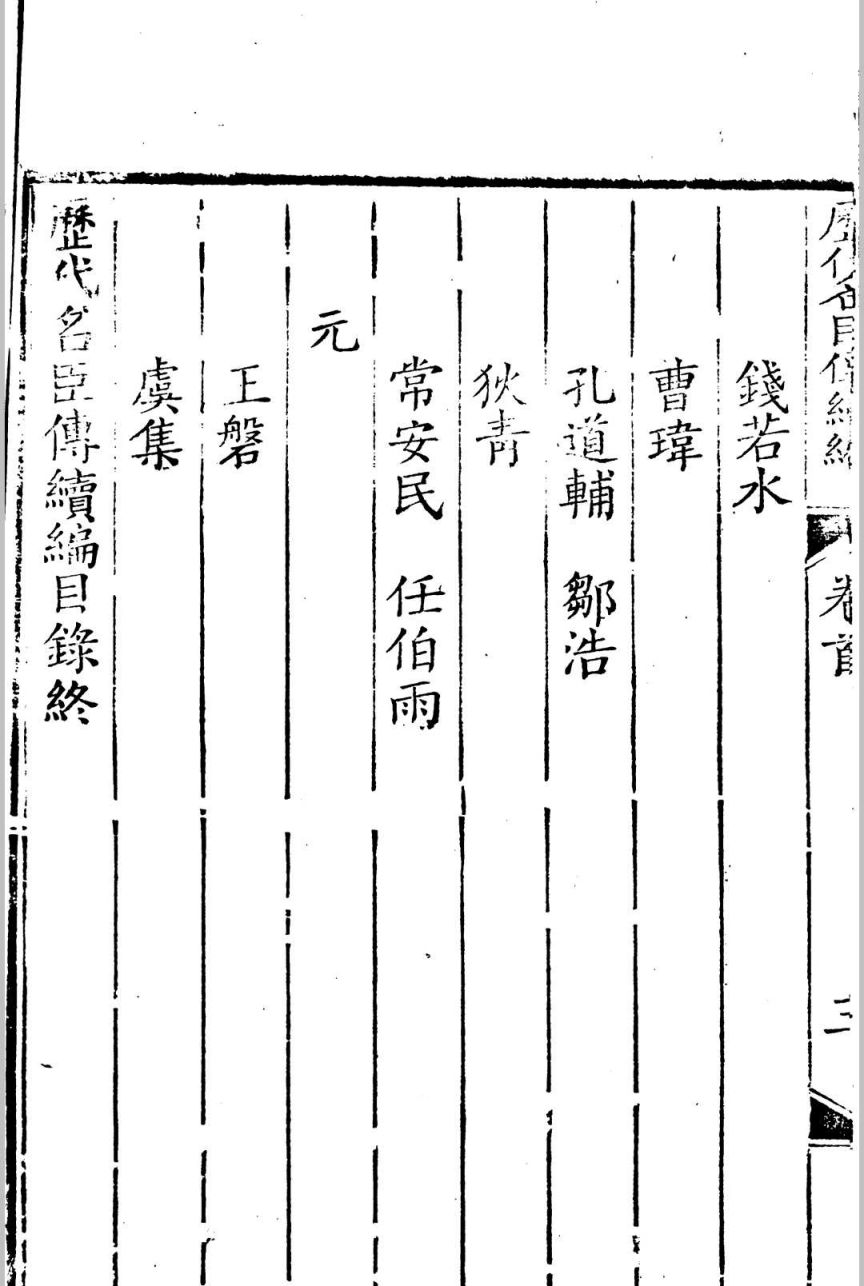 歷代名臣傳續編
卷首
三
錢若水
曹瑋
孔道輔 鄒浩
狄靑
常安民 任伯雨
元
王磐
虞集
歷代名臣傳續編目錄終